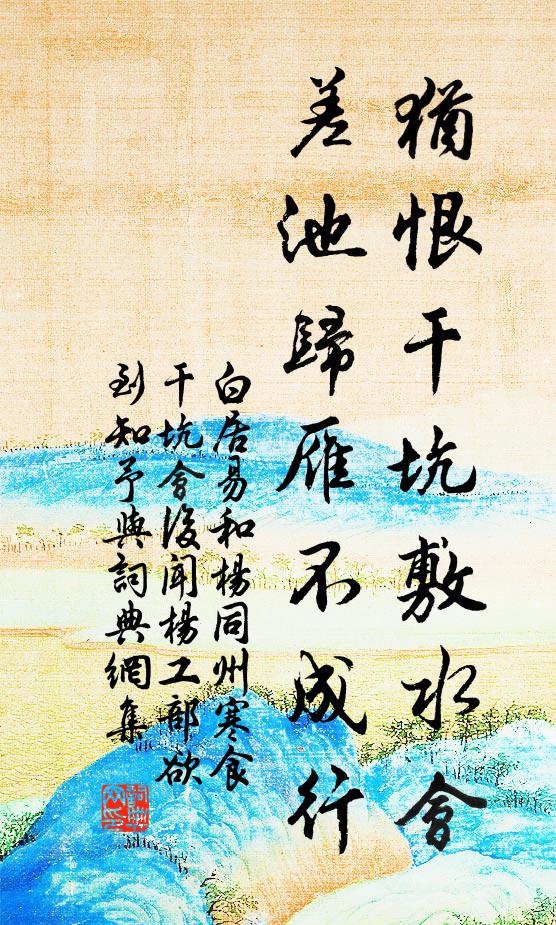 猶恨干坑敷水會
差池歸雁不成行
白居易和楊同州寒食
干坑會後聞楊工部欲
到知予與詞典網集